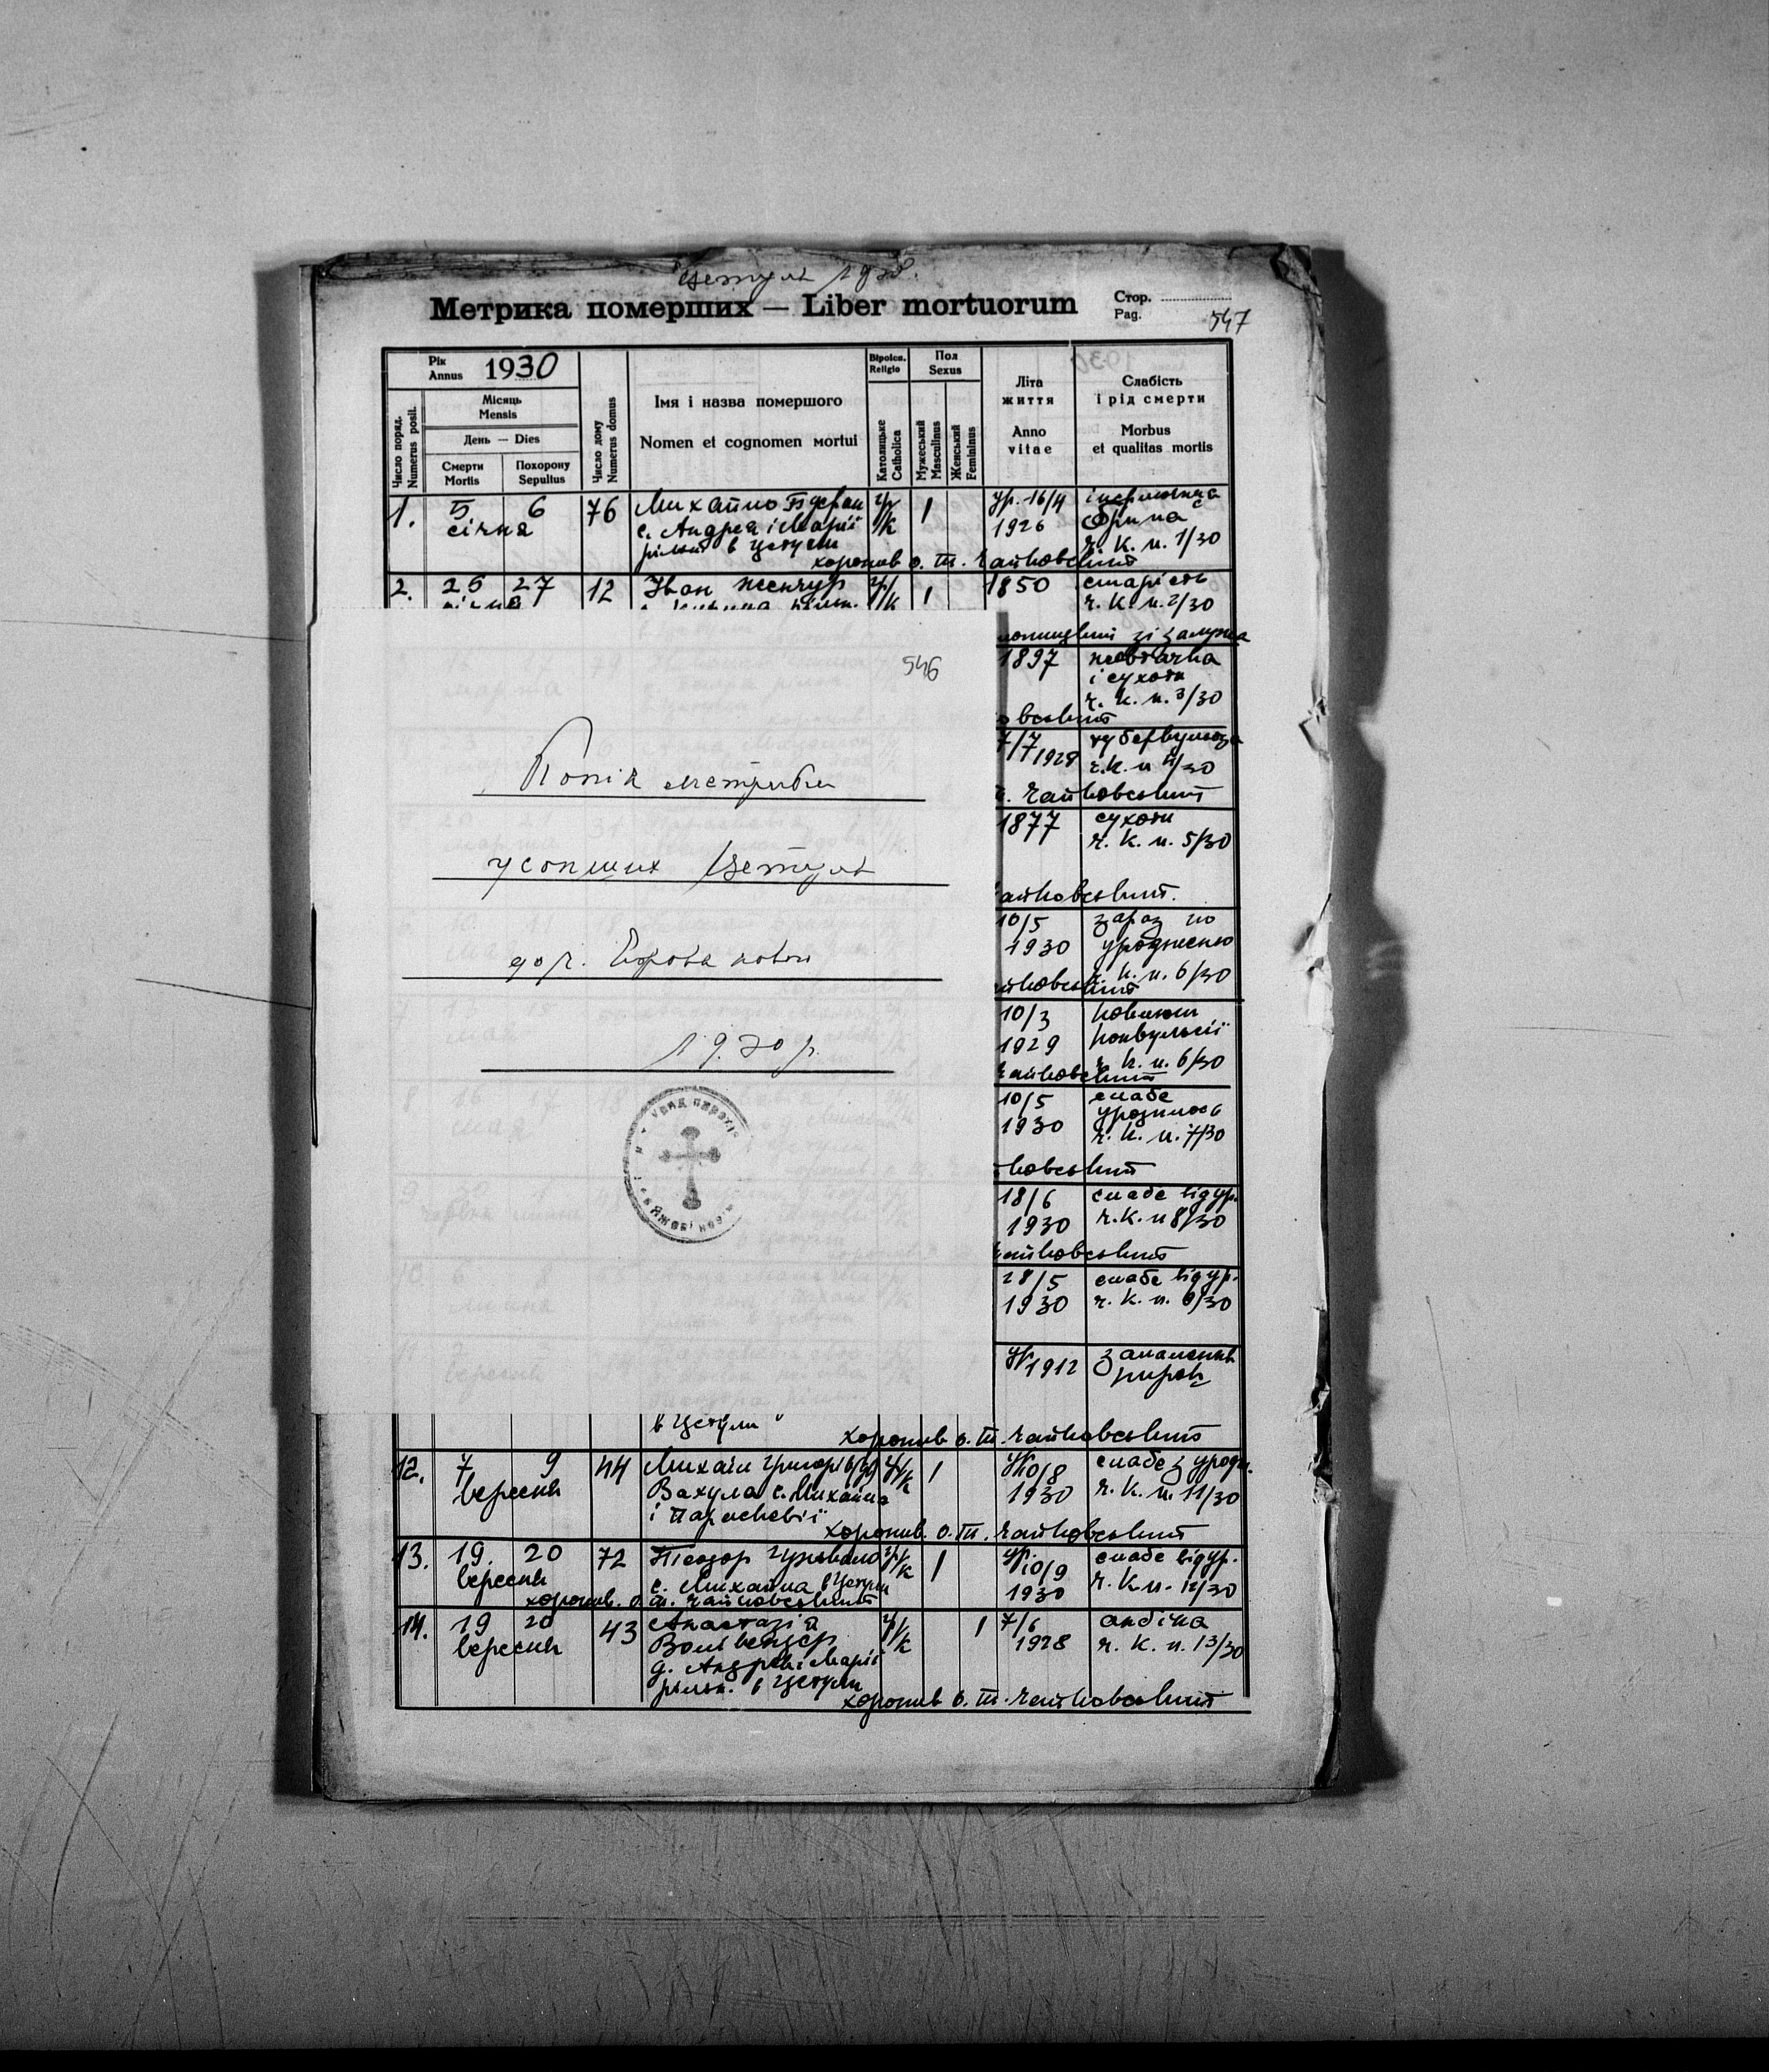 Цетуля
Метрика померших — Liber mortuorum
Стор.
Pag.
547
Рік
Annus
1930
Місяць
Mensis
День — Dies
Смерти
Mortis
Похорону
Sepultus
Число поряд.
Numerus posit.
Число дому
Numerus domus
Імя і назва помершого
Nomen et cognomen mortui
Віроісп.
Religio
Католицьке
Catholica
Пол
Sexus
Мужеський
Masculinus
Женський
Femininus
Літа
життя
Anno
vitae
Слабість
і рід смерти
Morbus
et qualitas mortis
1. 5 6 76 Михайло гр/к 1 ур. 16/4
січня с. Андрея і Марії 1926
в Цетули ч. к. п. 1/30
хоронив о. Т. Чайковський
2. 26 27 12 Іван гр/к 1 1850 старість
ч. к. п. 2/30
546
1897
і сухоти
ч. к. п. 3/30
7/7 1928 туберкульоза
ч. к. п. 4/30
Чайковський
1877 сухоти
ч. к. п. 5/30
айковський.
10/5 зараз по
1930 уродженю
ч. к. п. 6/30
10/3
1929 конвульсії
ч. к. п. 6/30
Чайковський
10/5 слабе
1930 уродилось
ч. к. п. 7/30
ковський
18/6 слабе від ур.
1930 ч. к. п. 8/30
Чайковський
28/5 слабе від ур.
1930 ч. к. п. 9/30
ур 1912 запалення
Копія метрики
усопших Цетуля
1930 р.
в Цетули
хоронив о. Т. Чайковський
12. 7 9 44 Михаіл Григорій гр/к 1 ур 10/8 слабе з урод.
вересня Вахула с. Михайла 1930 ч. к. п. 11/30
і Параскевії
хоронив о. Т. Чайковський
13. 19. 20 72 Теодор гр/к 1 ур. 10/9 слабе від ур.
вересня с. Михайла в Цетули 1930 ч. к. п. 12/30
хоронив о. Т. Чайковський
14. 19 20 43 Анастазія гр/к 1 7/6
вересня 1928 ч. к. п. 13/30
д. Андрея і Марії
рільн. в Цетули
хоронив о. Т. Чайковський